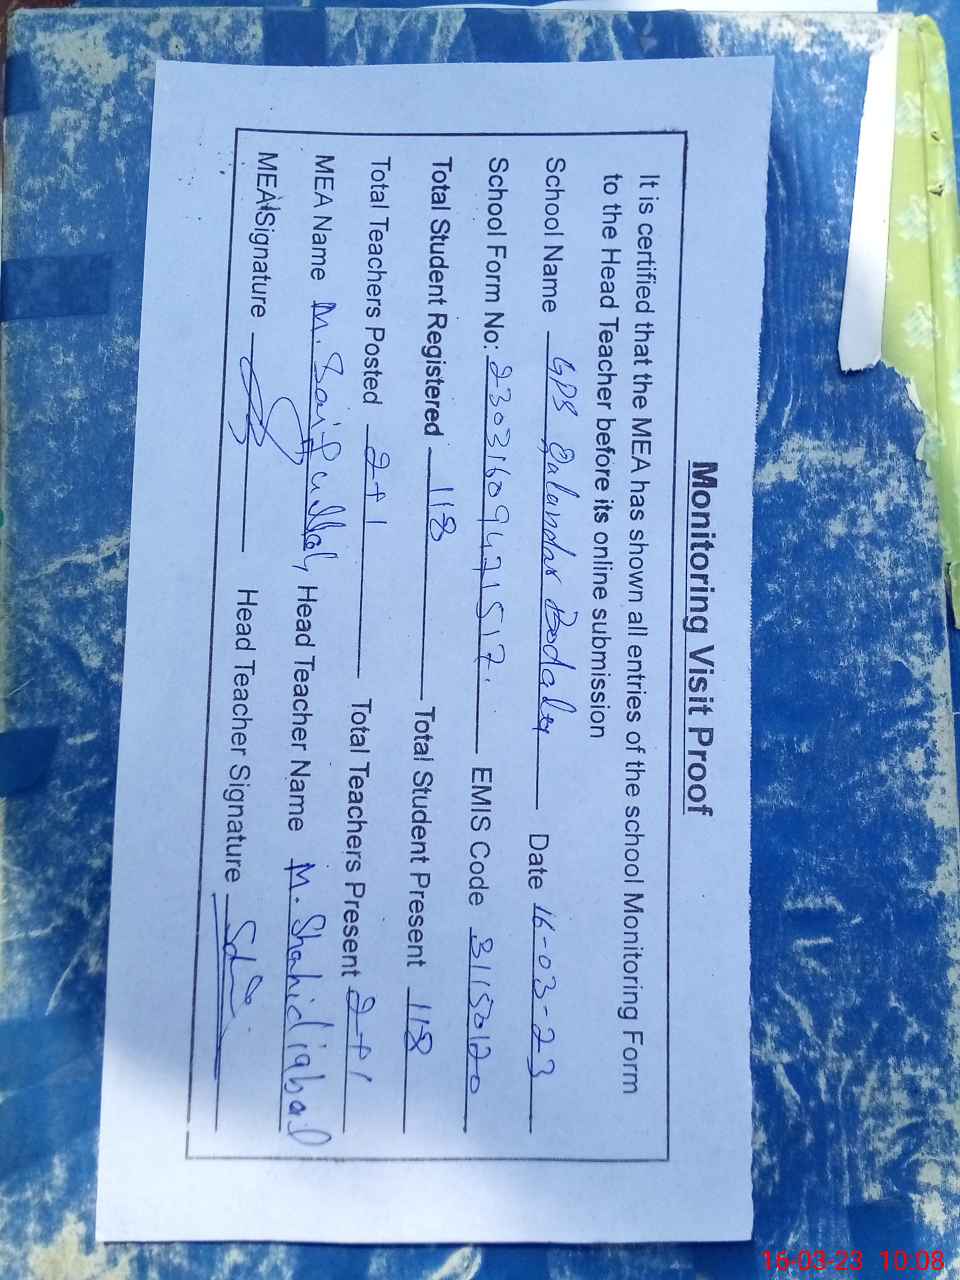 Monitoring Visit Proof
It is certified that the MEA has shown all entries of the school Monitoring Form
to the Head Teacher before its online submission
School Name GPS Qalandar Date 16-03-23
School Form No: 23031609471517. EMIS Code 31150120
Total Student Registered 118 Total Student Present 118
Total Teachers Posted 2+1 Total Teachers Present 2+1
MEA Name M. Saifullah Head Teacher Name M. Shahid iqbal
MEA Signature Head Teacher Signature
16-03-23 10:08